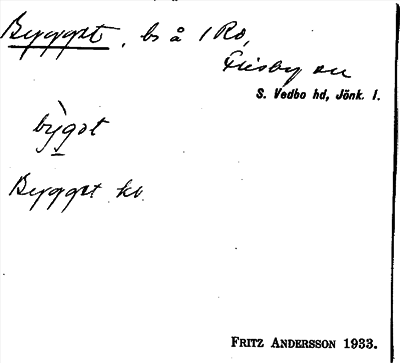 Bygget, bs å 1 Ro,
Frisby sn
S. Vedbo hd, Jönk. l.
bỳgət
Bygget kb.
FRITZ ANDERSSON 1933.